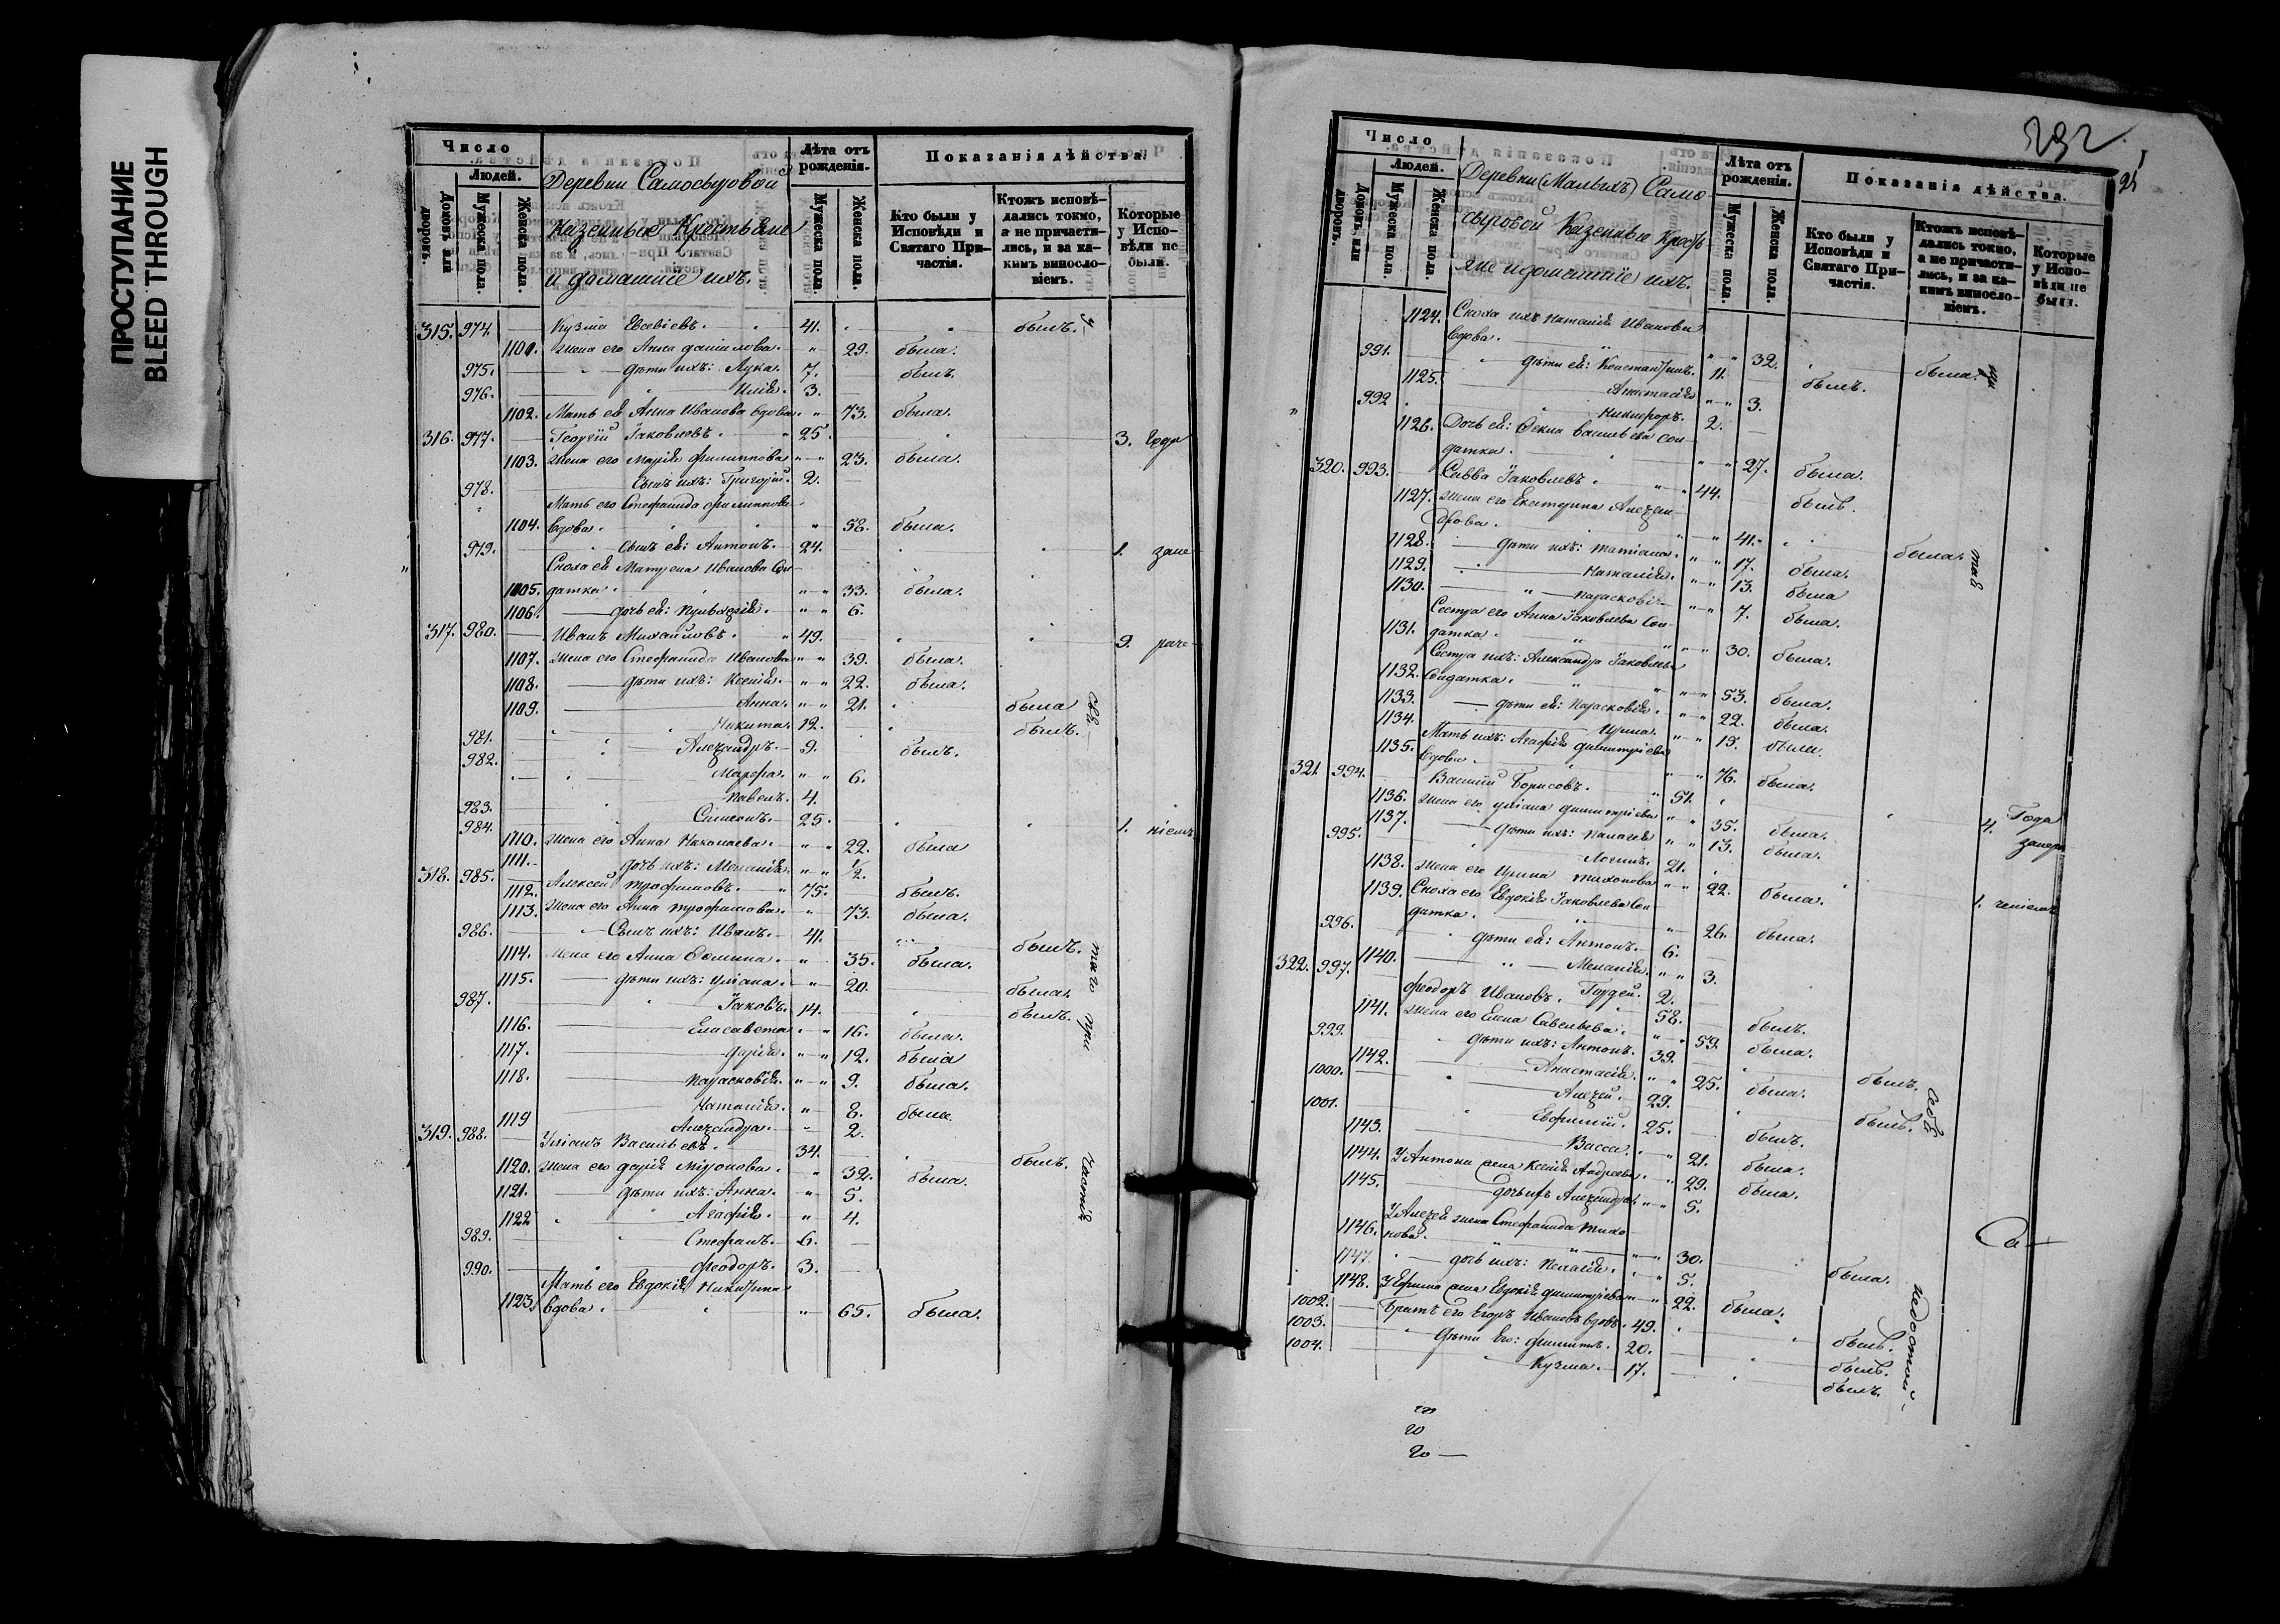 ПРОСТУПАНИЕ
BLEED THROUGH
Число
Людей.
Домовъ или дворовъ.
Мужеска пола.
Женска пола.
Деревни Самосыровой
Казенные Крестьяне
и домашніе ихъ.
Лѣта отъ рожденія.
Мужеска пола.
Женска пола.
Показанія дѣйства.
Кто были у Исповѣди и Святаго Причастія.
Ктожъ исповѣдались токмо, а не причастились, и за какимъ винословіемъ.
Которые у Исповѣди не были.
315. 974. Кузма Евсевіевъ. 41. былъ.
1101. жена его Анна Данилова. 29. была.
975. дѣти ихъ: Лука. 7. былъ.
976. Илія. 3.
1102. Мать ей Анна Иванова вдова. 73. была.
316. 977. Георгій Іаковлевъ. 25. 3. года
1103. жена его Марія Филиппова 23. была.
978. Сынъ ихъ: Григорій. 2.
Мать его Стефанида Филиппова
1104. вдова. 58. была.
979. сынъ ей: Антонъ. 24. 1. запе
Сноха ей Матрена Иванова Сол-
1105. датка. 33. была.
1106. дочь ей: Пульхерія. 6.
317. 980. Иванъ Михайловъ. 49. 9. раче
1107. жена его Стефанида Иванова 39. была.
1108. дѣти ихъ: Ксенія. 22. была.
1109. Анна. 21. была
981. Никита. 12. былъ.
982. Александръ. 9. былъ.
Марфа. 6.
983. Павелъ. 4.
984. Симеонъ. 25. 1. ніемъ
1110. жена его Анна Николаева. 22. была
1111. дочь ихъ: Меланія. ½.
318. 985. Алексей Трофимовъ. 75. былъ.
1112.
1113. жена его Анна Трофимова. 73. была.
986. Сынъ ихъ: Иванъ. 41. былъ.
1114. жена его Анна Фомина. 35. была.
1115. дѣти ихъ: Уліана. 20. была.
987. Іаковъ. 14. былъ.
1116. Елисавета. 16. была.
1117. Дарія. 12. была
1118. Парасковія. 9. была.
Наталія. 8. была.
1119 Александра. 2.
319. 988. Уліанъ Васильевъ. 34. былъ.
1120. жена его Дарія Миронова. 32. была.
1121. дѣти ихъ: Анна. 5.
1122 Агафія. 4.
989. Стефанъ. 6.
990. Феодоръ. 3.
Мать его Евдокія Никитина
1123. вдова. 65. была.
292
Число
Людей.
Домовъ или дворовъ.
Мужеска пола.
Женска пола.
Деревни (Малыхъ) Само
сыровой Казенные Кресть-
яне и домашніе ихъ.
Лѣта отъ рожденія.
Мужеска пола.
Женска пола.
Показанія дѣйства.
Кто были у Исповѣди и Святаго Причастія.
Ктожъ исповѣдались токмо, а не причастились, и за какимъ винословіемъ.
Которые у Исповѣди не были.
1124. Сноха ихъ Наталія Иванова
вдова. 32. была.
991. дѣти ей: Константинъ. 11. былъ.
1125. Анастасія 3.
992 Никифоръ. 2.
1126. Дочь ей: Фекла Васильева сол-
датка. 27. была.
320. 993. Савва Іаковлевъ. 44. былъ.
1127. жена его Екатерина Алексан-
дрова. 41. была.
1128. дѣти ихъ: Татіана. 17. была.
1129. Наталія. 13. была
1130. Параскові 7. была.
Сестра его Анна Іаковлева Сол-
1131. датка. 30. была.
Сестра ихъ: Александра Іаковлева
1132. Солдатка. 53. была.
1133. дѣти ей: Параскові. 22. была.
1134. Ирина. 15. была.
Мать ихъ: Агафія Димитріева
1135. вдова. 76. была.
321. 994. Василій Борисовъ. 51. 4. Года
1136. жена его Уліана Димитріева 35. была. запер
1137. дѣти ихъ: Палагея 13. была.
995. Логинъ. 21. 1. ченіемъ
1138. жена его Ирина Тихонова 22. была.
1139. Сноха его Евдокія Іаковлева Сол-
датка. 26. была.
996. дѣти ей: Антонъ. 6.
1140. Меланія. 3.
322. 997. Гордей. 2.
Феодоръ Ивановъ. 58. былъ.
1141. жена его Елена Савельева. 59. была.
999. дѣти ихъ: Антонъ. 39. былъ.
1142. Анастасія. 25. была.
1000. Алексей. 29. былъ.
1001. Евфимій. 25. былъ.
1143. Васса. 21. была.
1144. У Антона жена Ксенія Андреева. 29. была.
1145. дочь ихъ Александра. 5.
У Алексея жена Стефанида Тихо
1146. нова. 30. была.
1147. дочь ихъ: Пелагія. 5.
1148. У Ефима жена Евдокія Димитріева 22. была.
1002. Братъ его Егоръ Ивановъ вдовъ. 49. былъ.
1003. дѣти его: Филиппъ. 20. былъ.
1004. Кузма. 17. былъ.